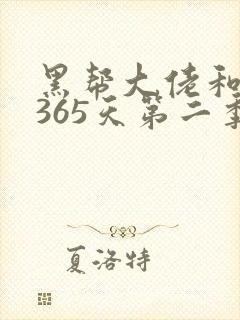 黑帮大佬和
365天第二季
夏洛特